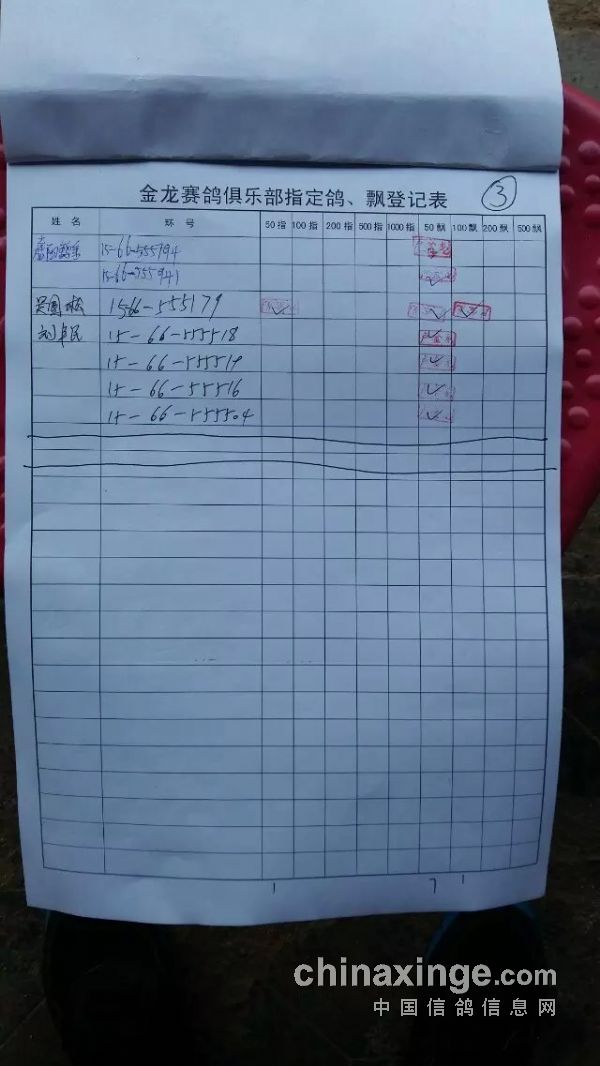 金龙赛鸽俱乐部指定鸽、飘登记表 ③
姓名 环号 50指 100指 200指 500指 1000指 50飘 100飘 200飘 500飘
15-66-555794
15-66-555941
吴国松 1566-555179
刘卓民 15-66-555518
15-66-555519
15-66-55516
15-66-555504
1 7 1
chinaxinge.com
中国信鸽信息网